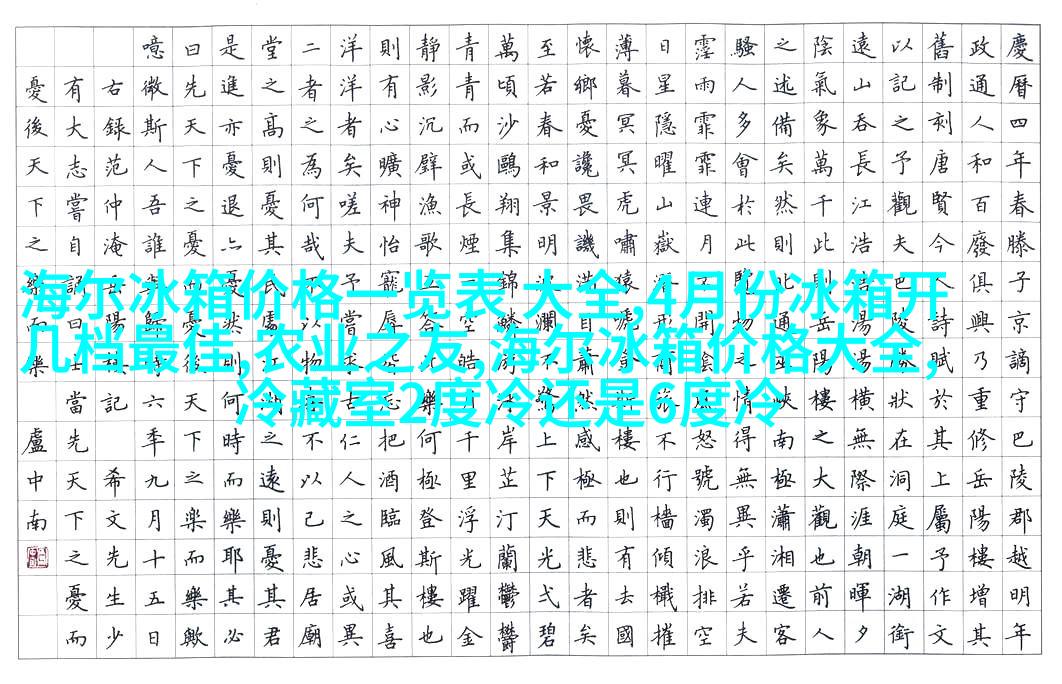 海尔冰箱价格一览表 大全,4月份冰箱开
几档最佳,农业之友,海尔冰箱价格大全,
冷藏室2度冷还是6度冷
慶曆四年春滕子京謫守巴陵郡越明年
政通人和百廢俱興乃重修岳陽樓增其
舊制刻唐賢今人詩賦於其上屬予作文
以記之予觀夫巴陵勝狀在洞庭一湖銜
遠山吞長江浩浩湯湯橫無際涯朝暉夕
陰氣象萬千此則岳陽樓之大觀也前人
之述備矣然則北通巫峽南極瀟湘遷客
騷人多會於此覽物之情得無異乎若夫
霪雨霏霏連月不開陰風怒號濁浪排空
日星隱曜山嶽潛形商旅不行檣傾檝摧
薄暮冥冥虎嘯猿樓也則有去國
懷鄉憂讒畏譏滿目蕭然感極而悲者矣
至若春和景明波瀾不驚上下天光弌碧
萬頃沙鷗翔集錦鱗游泳岸芷汀蘭鬱鬱
青青而或長煙一空皓月千里浮光躍金
靜影沉璧漁歌互答此樂何極登斯樓也
則有心曠神怡寵辱皆忘把酒臨風其喜
洋洋者矣嗟夫予嘗求古仁人之心或異
二者之為何哉不以物喜不以己悲居廟
堂之高則憂其民處江湖之遠則憂其君
是進亦憂退亦憂然則何時而樂耶其必
曰先天下之憂而憂後天下之楽而樂歟
噫微斯人吾誰與歸時六年九月十五日
右錄范仲淹岳陽樓記 希文先生少
有大志嘗自誦曰士當先天下之憂而
憂後天下之樂而樂 盧中南